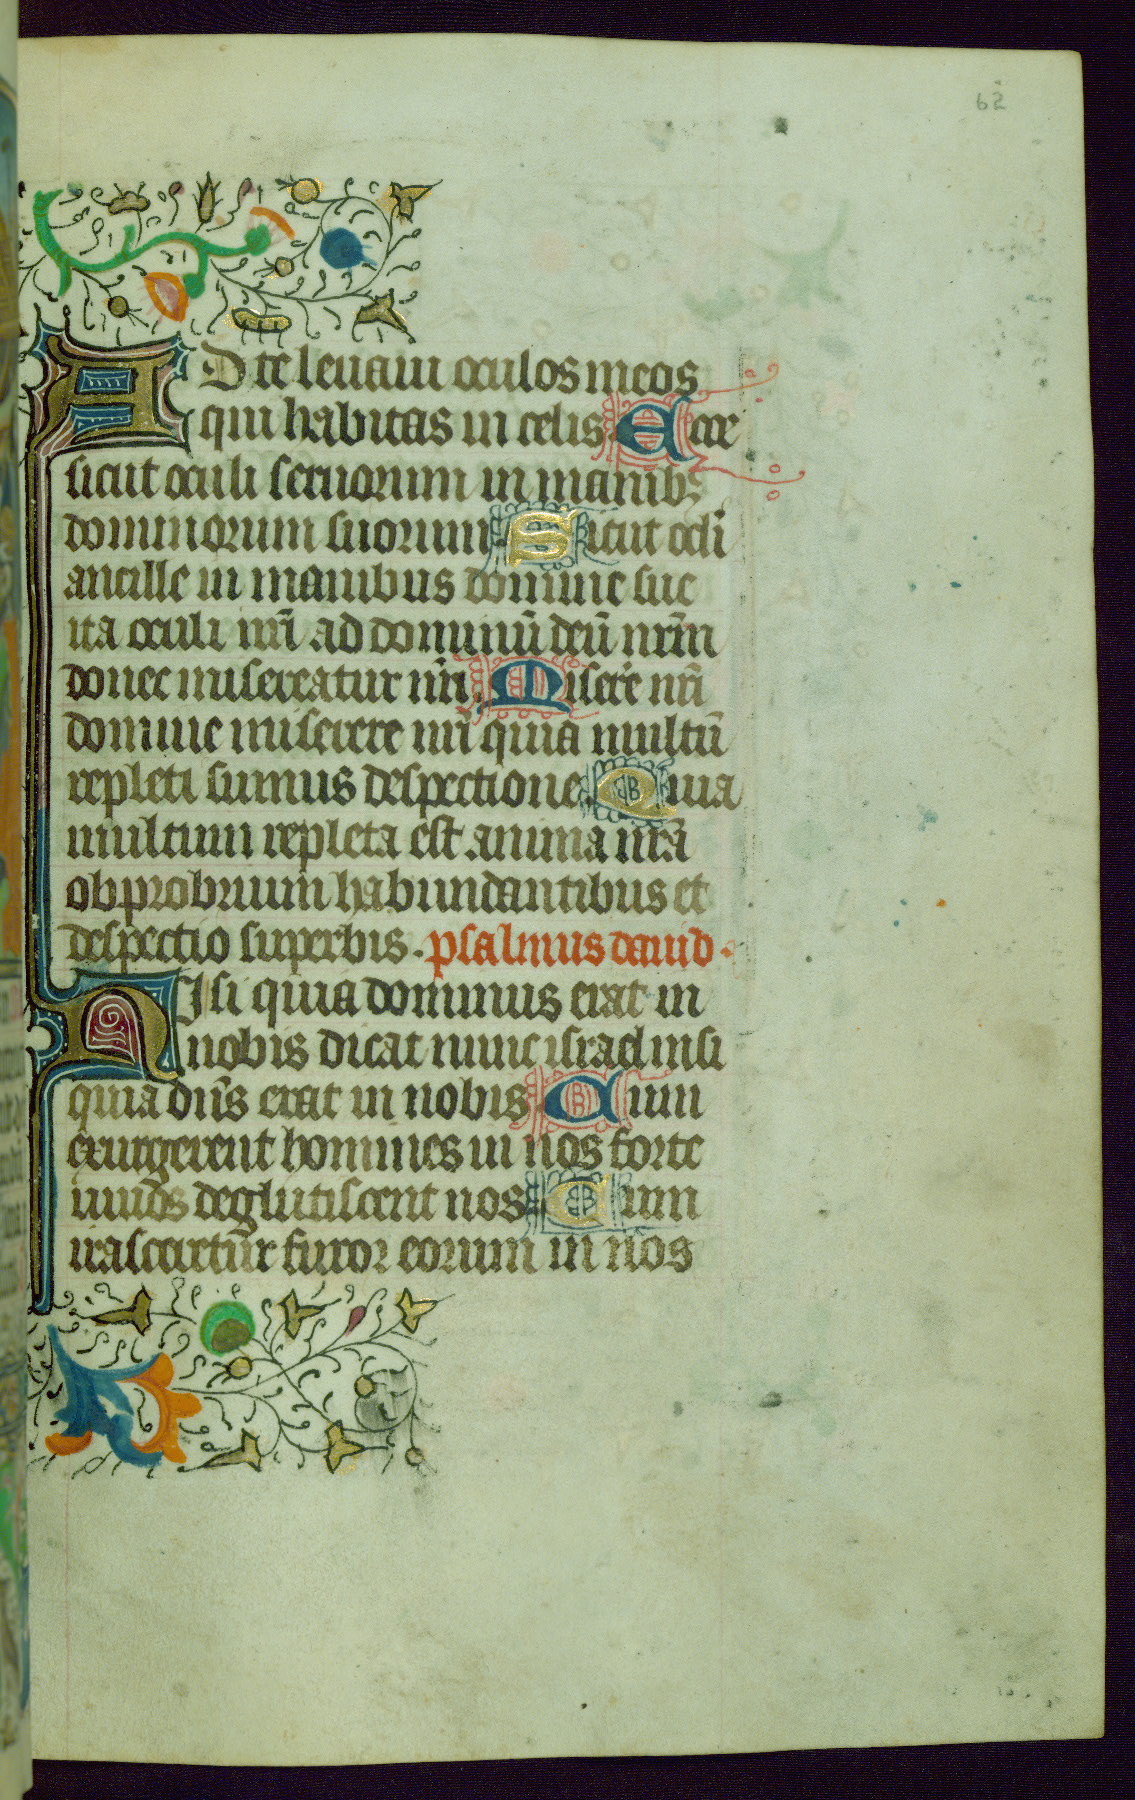 62
AD te leuaui oculos meos
qui habitas in celis Ecce
sicut oculi seruorum in manibꝫ
dominorum suorum Sicut ocli
ancille in manibus domine sue
ita oculi nr̄i ad dominū deū nrm̄
donec misereatur nr̄i Misere nr̄i
domine miserere nr̄i quia multū
repleti sumus despectione Quia
multum repleta est anima nr̄a
obprobrium habundantibus et
despectio superbis. psalmus dauid.
NIsi quia dominus erat in
nobis dicat nunc israel nisi
quia dn̄s erat in nobis Cum
exurgerent homines in nos forte
uiuos deglutiscent nos Cum
irasceretur furor eorum in nos